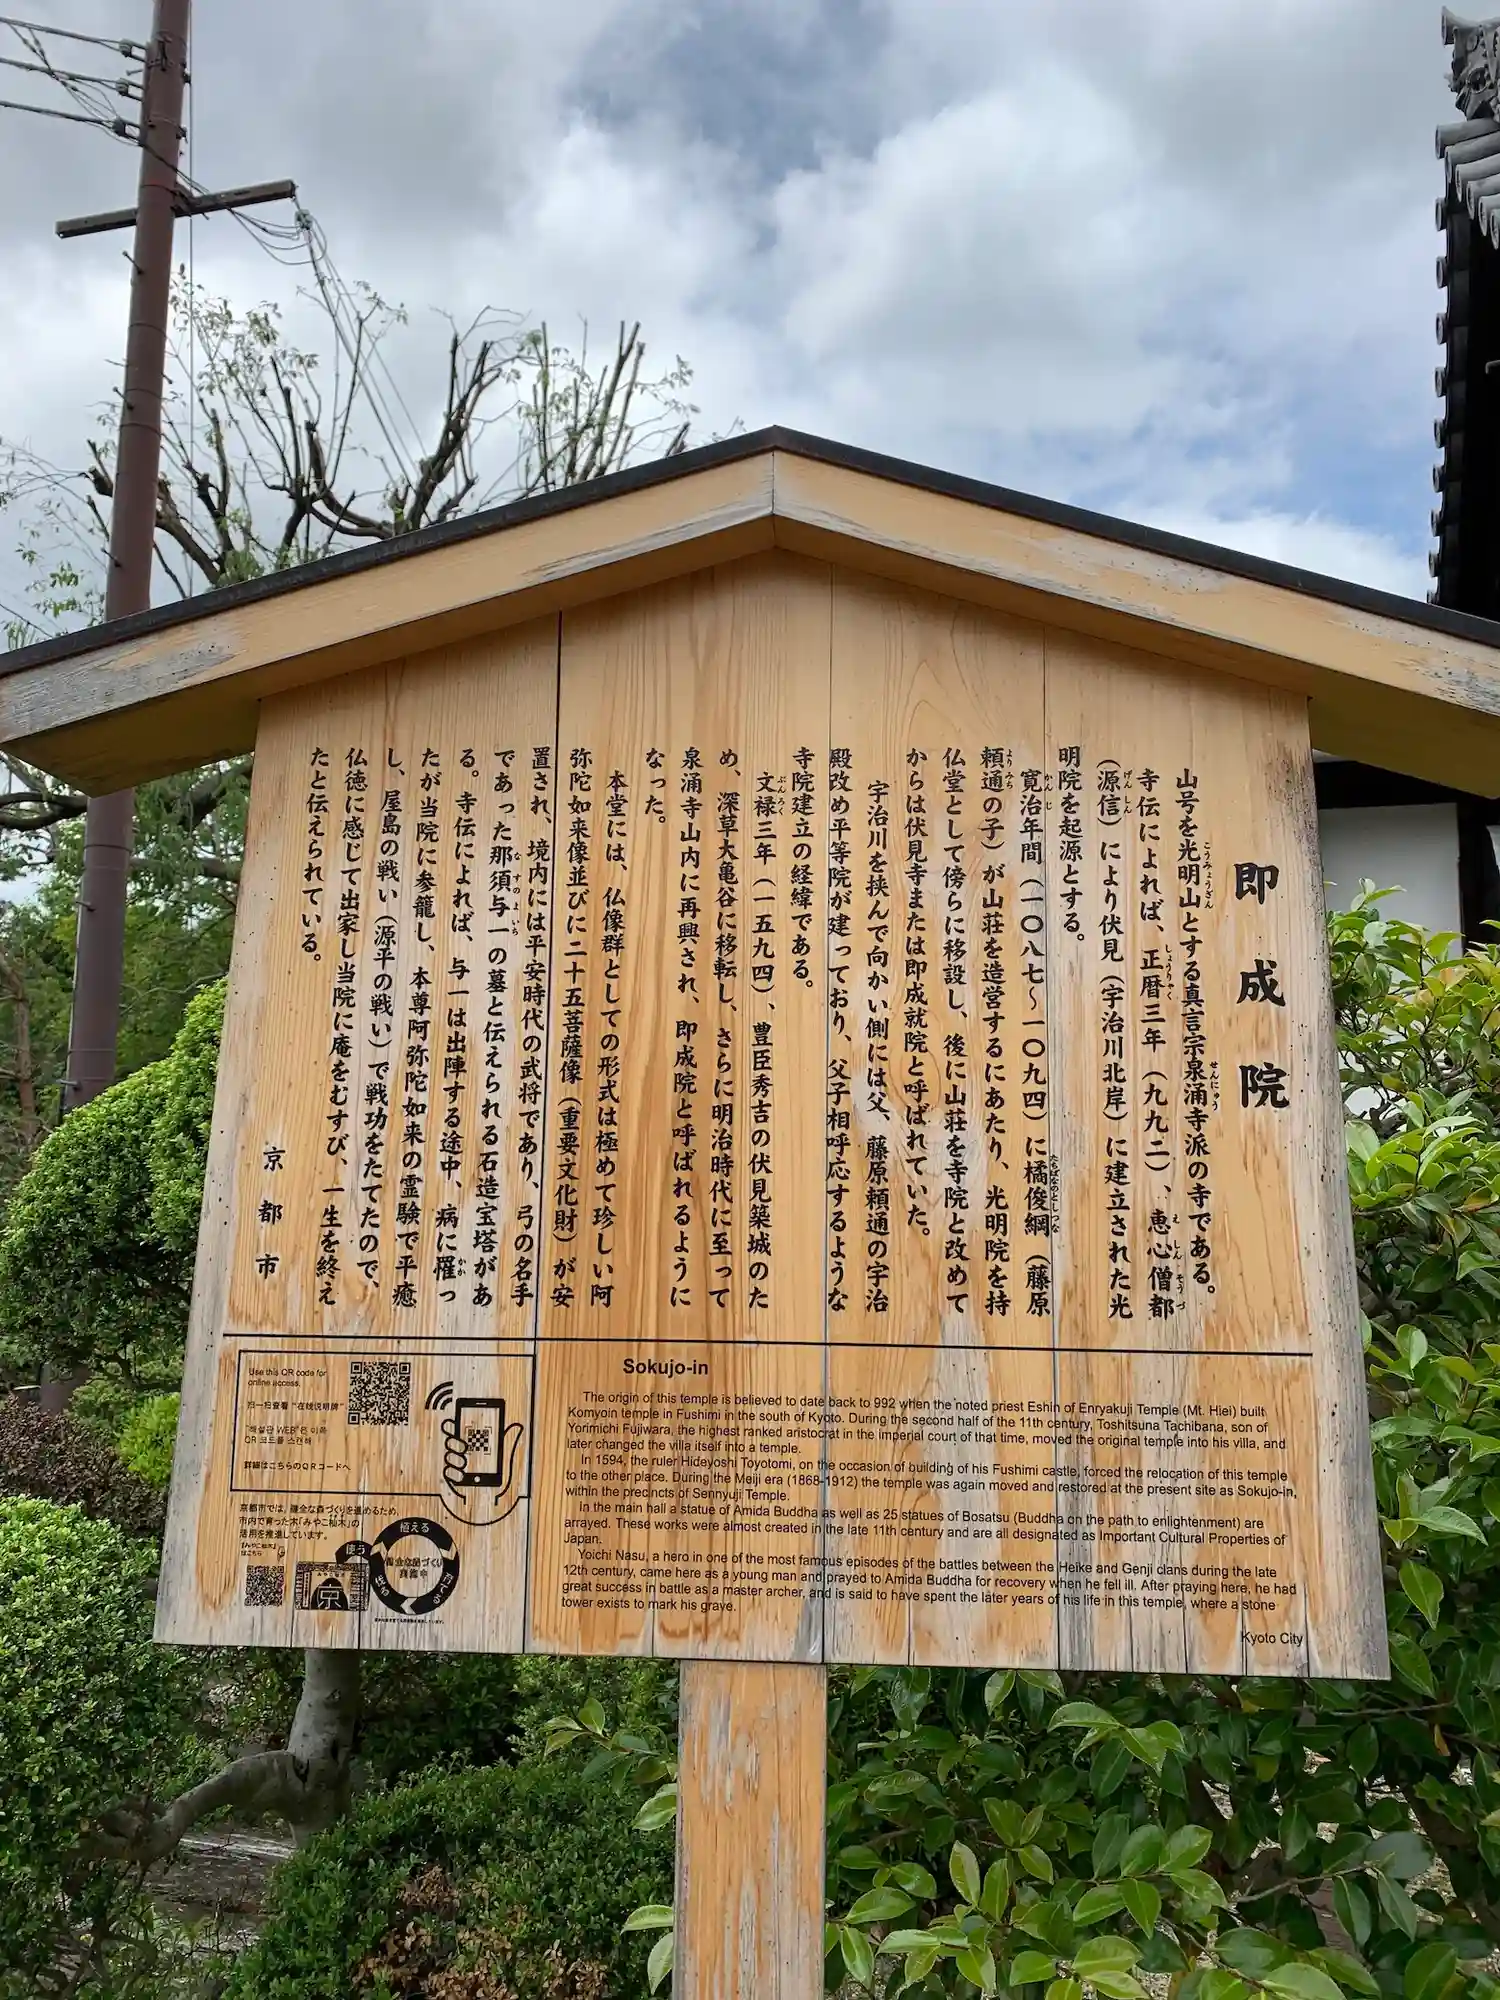 即成院
山号を光明山とする真言宗泉涌寺派の寺である。
寺伝によれば、正暦三年（九九二）、恵心僧都
（源信）により伏見（宇治川北岸）に建立された光
明院を起源とする。
寛治年間（一〇八七～一〇九四）に橘俊綱（藤原
頼通の子）が山荘を造営するにあたり、光明院を持
仏堂として傍らに移設し、後に山荘を寺院と改めて
からは伏見寺または即成就院と呼ばれていた。
宇治川を挟んで向かい側には父、藤原頼通の宇治
殿改め平等院が建っており、父子相呼応するような
寺院建立の経緯である。
文禄三年（一五九四）、豊臣秀吉の伏見築城のた
め、深草大亀谷に移転し、さらに明治時代に至って
泉涌寺山内に再興され、即成院と呼ばれるように
なった。
本堂には、仏像群としての形式は極めて珍しい阿
弥陀如来像並びに二十五菩薩像（重要文化財）が安
置され、境内には平安時代の武将であり、弓の名手
であった那須与一の墓と伝えられる石造宝塔があ
る。寺伝によれば、与一は出陣する途中、病に罹っ
たが当院に参籠し、本尊阿弥陀如来の霊験で平癒
し、屋島の戦い（源平の戦い）で戦功をたてたので、
仏徳に感じて出家し当院に庵をむすび、一生を終え
たと伝えられている。
京都市
Use this QR code for
online access.
扫一扫查看“在线说明牌”
"해설판 WEB"은 이쪽
QR 코드를 스캔해
詳細はこちらのQRコードへ
京都市では、健全な森づくりを進めるため、
市内で育った木「みやこ杣木」の
活用を推進しています。
「みやこ杣木」
はこちら
植える
使う
育てる
京
Sokujo-in
The origin of this temple is believed to date back to 992 when the noted priest Eshin of Enryakuji Temple (Mt. Hiei) built
Komyoin temple in Fushimi in the south of Kyoto. During the second half of the 11th century, Toshitsuna Tachibana, son of
Yorimichi Fujiwara, the highest ranked aristocrat in the imperial court of that time, moved the original temple into his villa, and
later changed the villa itself into a temple.
In 1594, the ruler Hideyoshi Toyotomi, on the occasion of building of his Fushimi castle, forced the relocation of this temple
to the other place. During the Meiji era (1868-1912) the temple was again moved and restored at the present site as Sokujo-in,
within the precincts of Sennyuji Temple.
In the main hall a statue of Amida Buddha as well as 25 statues of Bosatsu (Buddha on the path to enlightenment) are
arrayed. These works were almost created in the late 11th century and are all designated as Important Cultural Properties of
Japan.
Yoichi Nasu, a hero in one of the most famous episodes of the battles between the Heike and Genji clans during the late
12th century, came here as a young man and prayed to Amida Buddha for recovery when he fell ill. After praying here, he had
great success in battle as a master archer, and is said to have spent the later years of his life in this temple, where a stone
tower exists to mark his grave.
Kyoto City